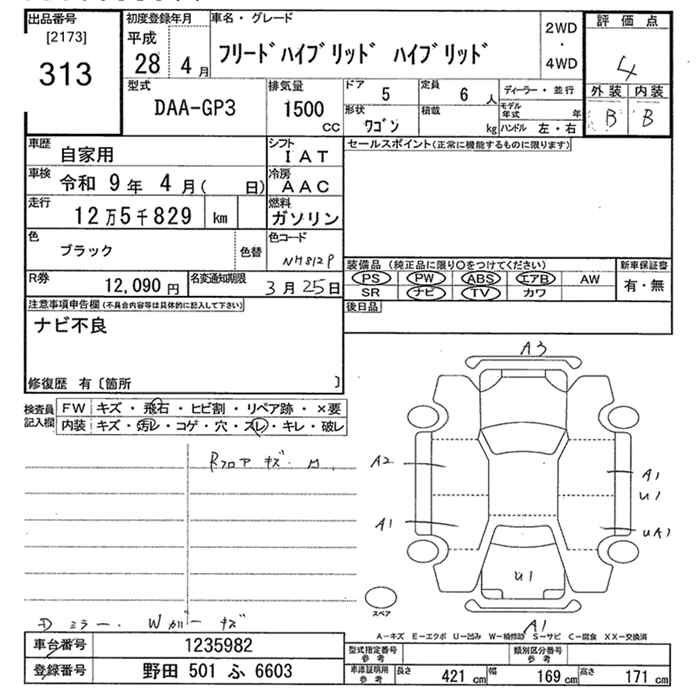 出品番号
[2173]
313
初度登録年月
平成
28 4 月
車名・グレード
フリードハイブリッド ハイブリッド
2WD
・
4WD
評価点
4
外装 内装
B B
型式
DAA-GP3
排気量
1500
CC
ドア
5
定員
6 人
形状
ワゴン
積載
kg
ディーラー・並行
モデル
年式 年
ハンドル 左・右
車歴
自家用
シフト
IAT
車検
令和 9年 4月( 日)
冷房
AAC
走行
12万5千829 km
燃料
ガソリン
色
ブラック
色替
色コード
NH812P
R券
12,090 円
名変通知期限
3月25日
セールスポイント(正常に機能するものに限ります)
装備品 (純正品に限り○をつけてください)
PS PW ABS エアB AW
SR ナビ TV カワ
新車保証書
有・無
後日品
注意事項申告欄(不具合内容等は具体的に記入して下さい)
ナビ不良
修復歴 有〔箇所 〕
検査員
記入欄
FW キズ・飛石・ヒビ割・リペア跡・×要
内装 キズ・汚レ・コゲ・穴・スレ・キレ・破レ
Rフロア キズ.
Dミラー. Wガー キズ
A3
A2
A1
A1
U1
UA1
U1
A1
スペア
A-キズ E-エクボ U-凹み W-補修跡 S-サビ C-腐食 XX-交換済
車台番号
1235982
登録番号
野田 501 ふ 6603
型式指定番号
参考
類別区分番号
参考
車庫証明用
参考
長さ
421 cm
幅
169 cm
高さ
171 cm